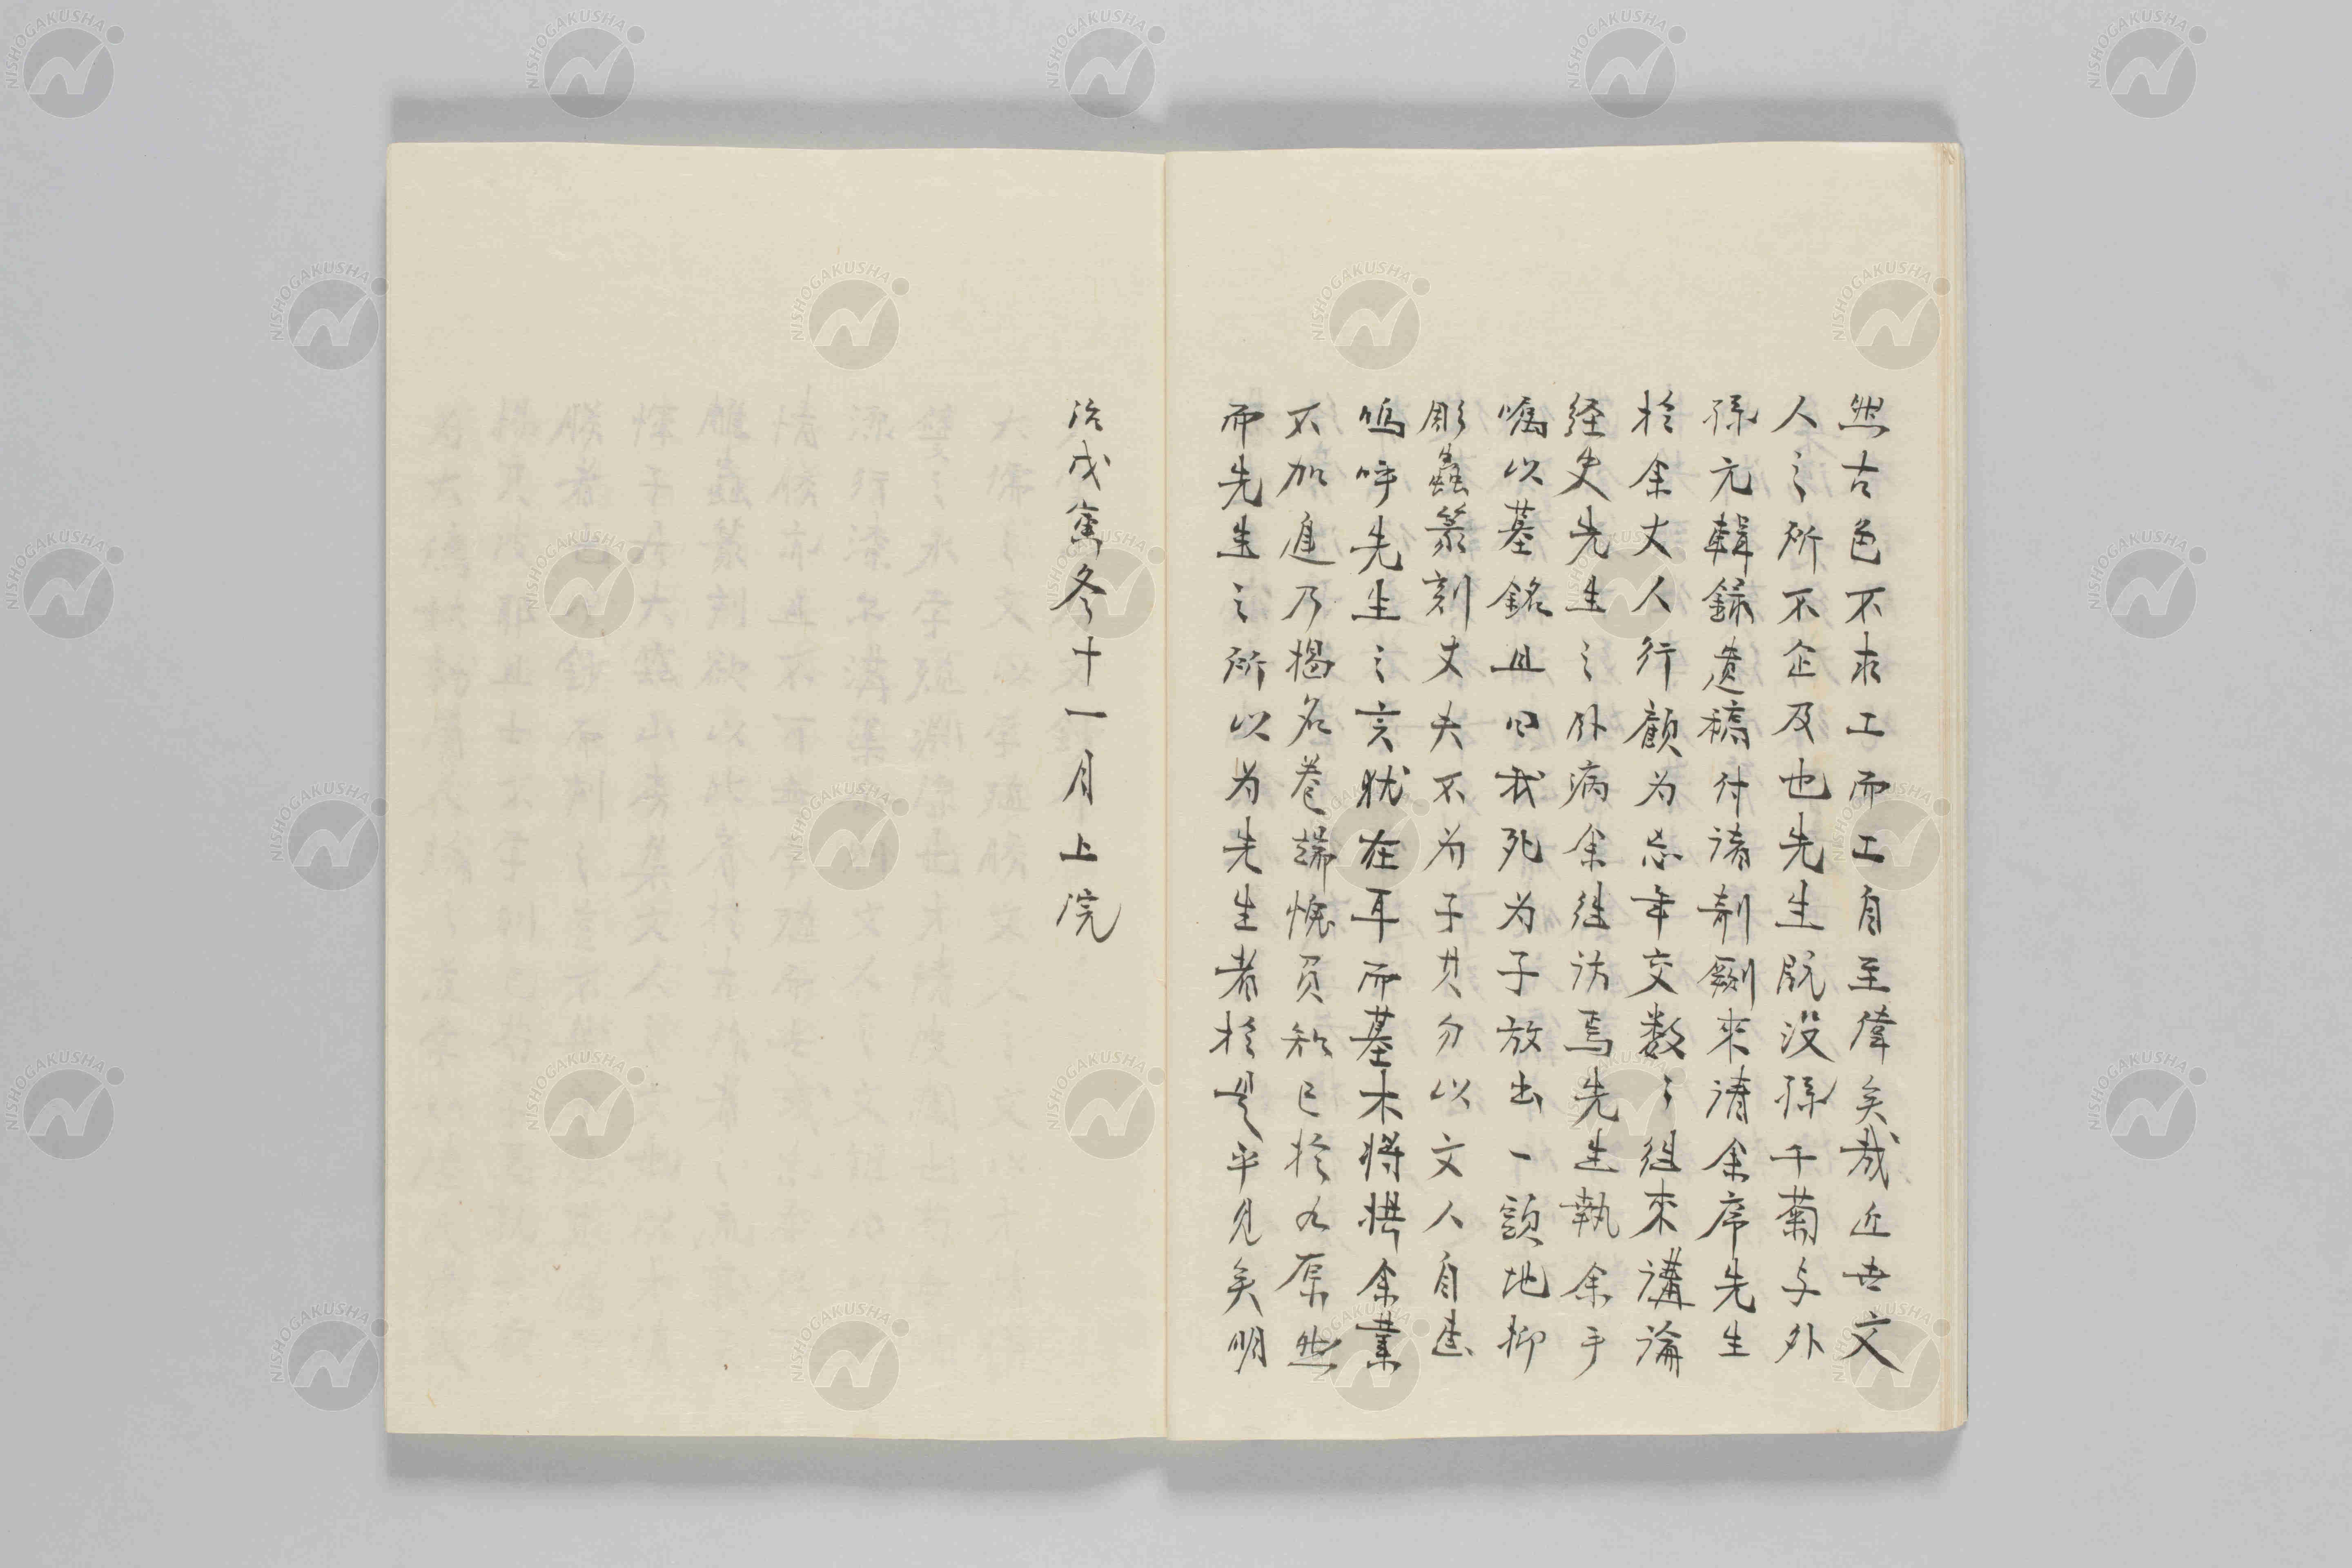 然古色不求工而工自至偉矣哉近世文
人之所不企及也先生既没孫千菊与外
孫元輯録遺稿付諸剞劂來請余序先生
於余丈人行顧为忘年交数〻徃來講論
経史先生之外病余徃訪焉先生執余手
嘱以墓銘且曰我死为子放出一頭地抑
彫蟲篆刻丈夫不为子其勿以文人自建
嗚呼先生之言犹在耳而墓木将拱余業
不加進乃掲名卷端愧负知己於九原然
而先生之所以为先生者於是乎見矣明
治戊寅冬十一月上浣
NISHOGAKUSHA